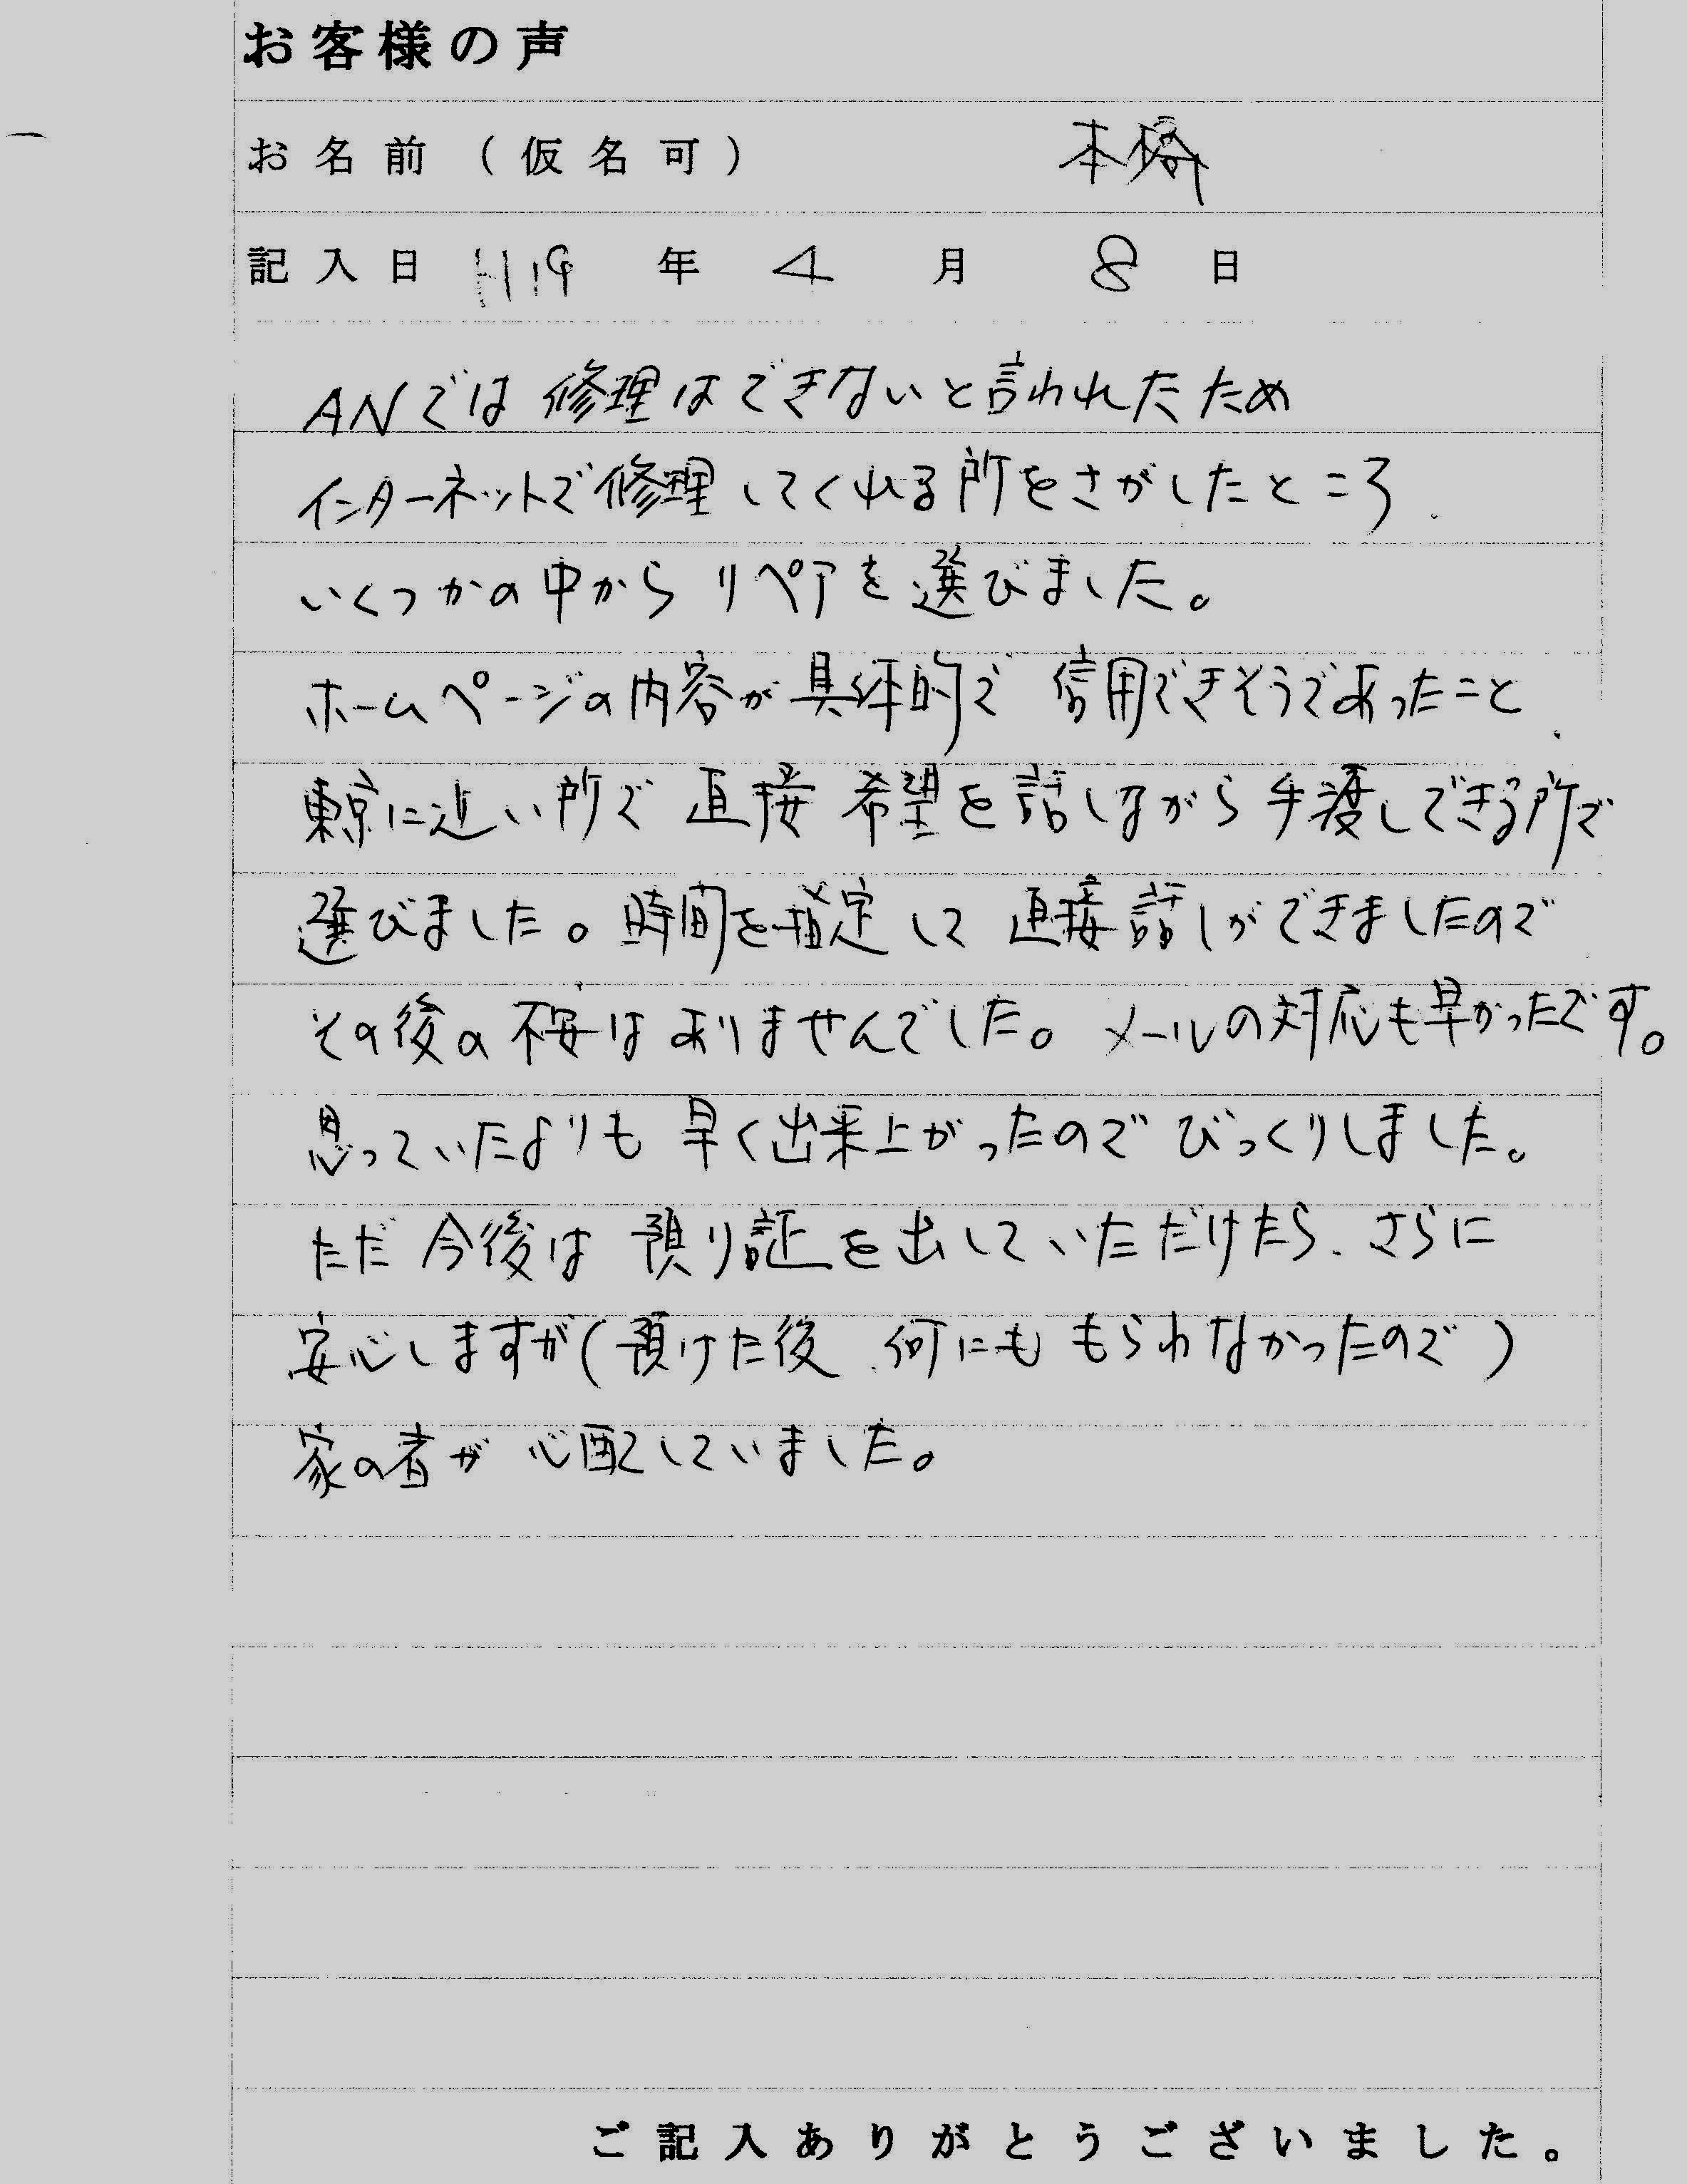 お客様の声
お名前（仮名可） 本橋
記入日 H19 年 4 月 8 日
ANでは修理はできないと言われたため
インターネットで修理してくれる所をさがしたところ
いくつかの中からリペアを選びました。
ホームページの内容が具体的で信用できそうであったこと、
東京に近い所で直接希望を話しながら手渡しできる所で
選びました。時間を指定して直接話しができましたので
その後の不安はありませんでした。メールの対応も早かったです。
思っていたよりも早く出来上がったのでびっくりしました。
ただ今後は預り証を出していただけたら、さらに
安心しますが（預けた後、何にももらわなかったので）
家の者が心配していました。
ご記入ありがとうございました。